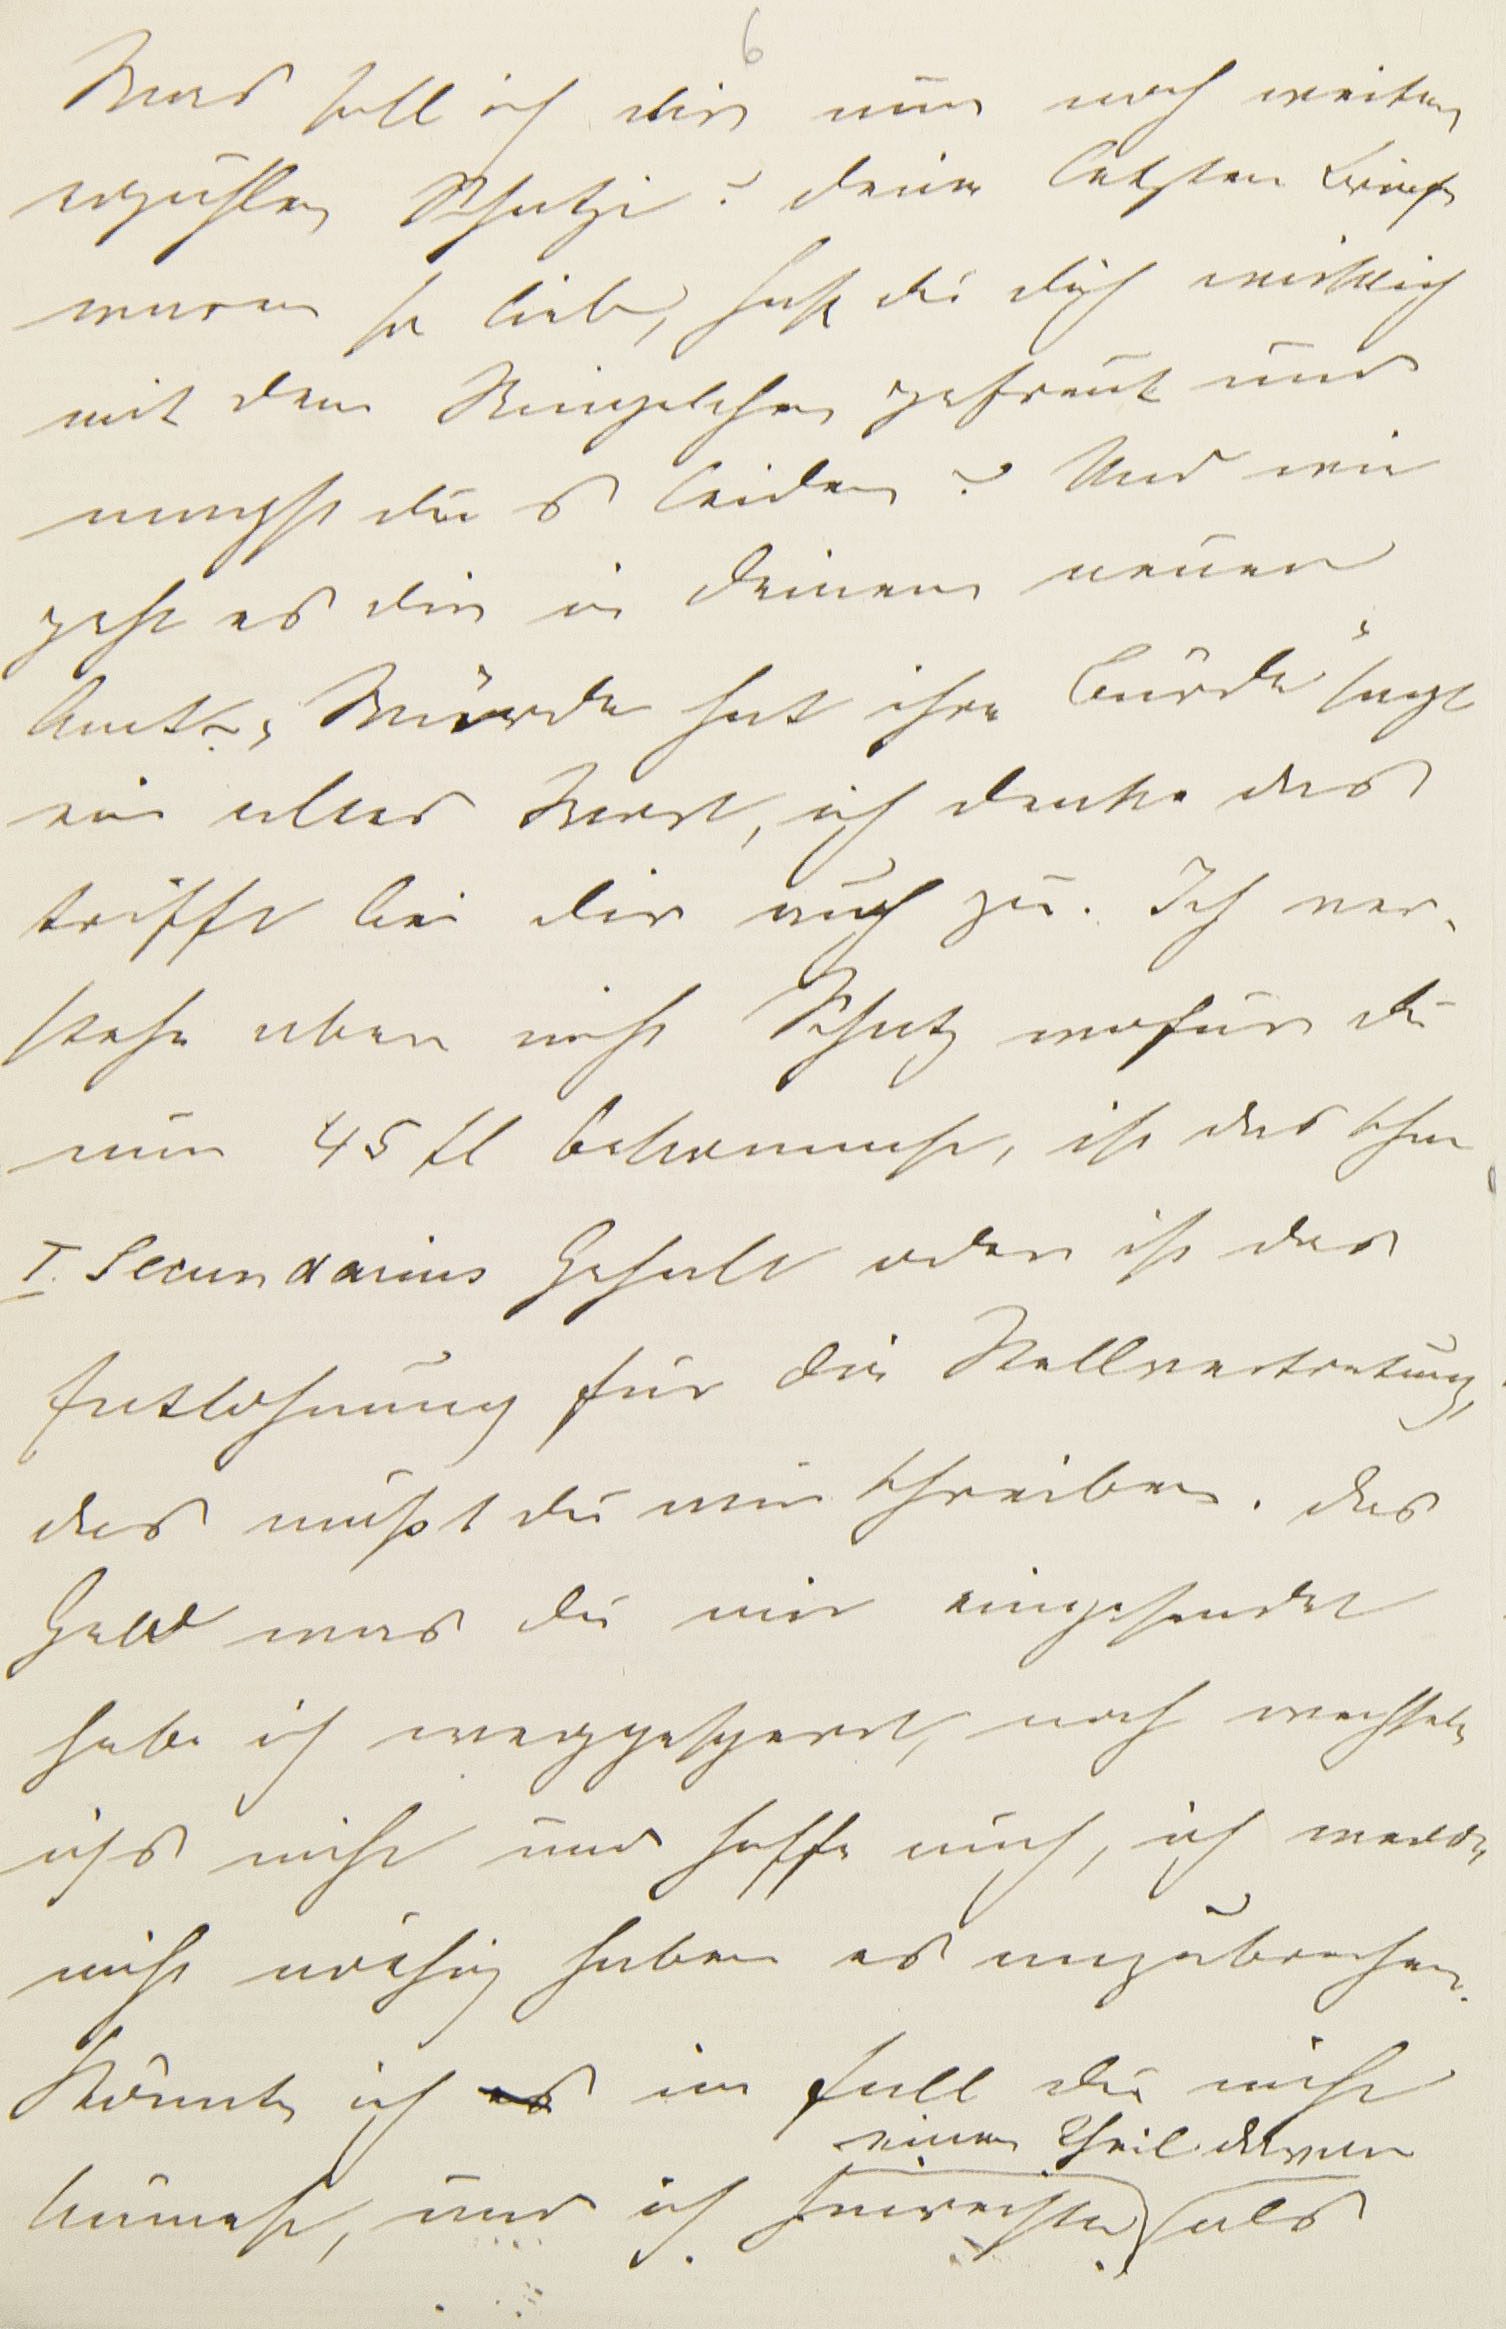 6
Was soll ich dir nun noch weiter
erzählen Schatzi? deine letzten Briefe
waren so lieb, hast du dich wirklich
mit dem Ringelchen gefreut und
magst du es leiden? Und wie
geht es dir in deinem neuen
Amt? „Würde hat ihre Bürde“ sagt
ein altes Wort, ich denke das
trifft bei dir auch zu. Ich ver-
stehe aber nicht Schatz wofür du
nun 45 fl bekommst, ist das schon
I. Secundarius Gehalt oder ist das
Entlohnung für die Stellvertretung,
das mußt du mir schreiben. das
Geld was du mir eingesendet
habe ich weggesperrt, noch wechsele
ichs nicht und hoffe auch, ich werde
nicht nöthig haben es anzubrechen.
Könnte ich es im Fall du nicht
einen Theil davon
kämest, und ich als